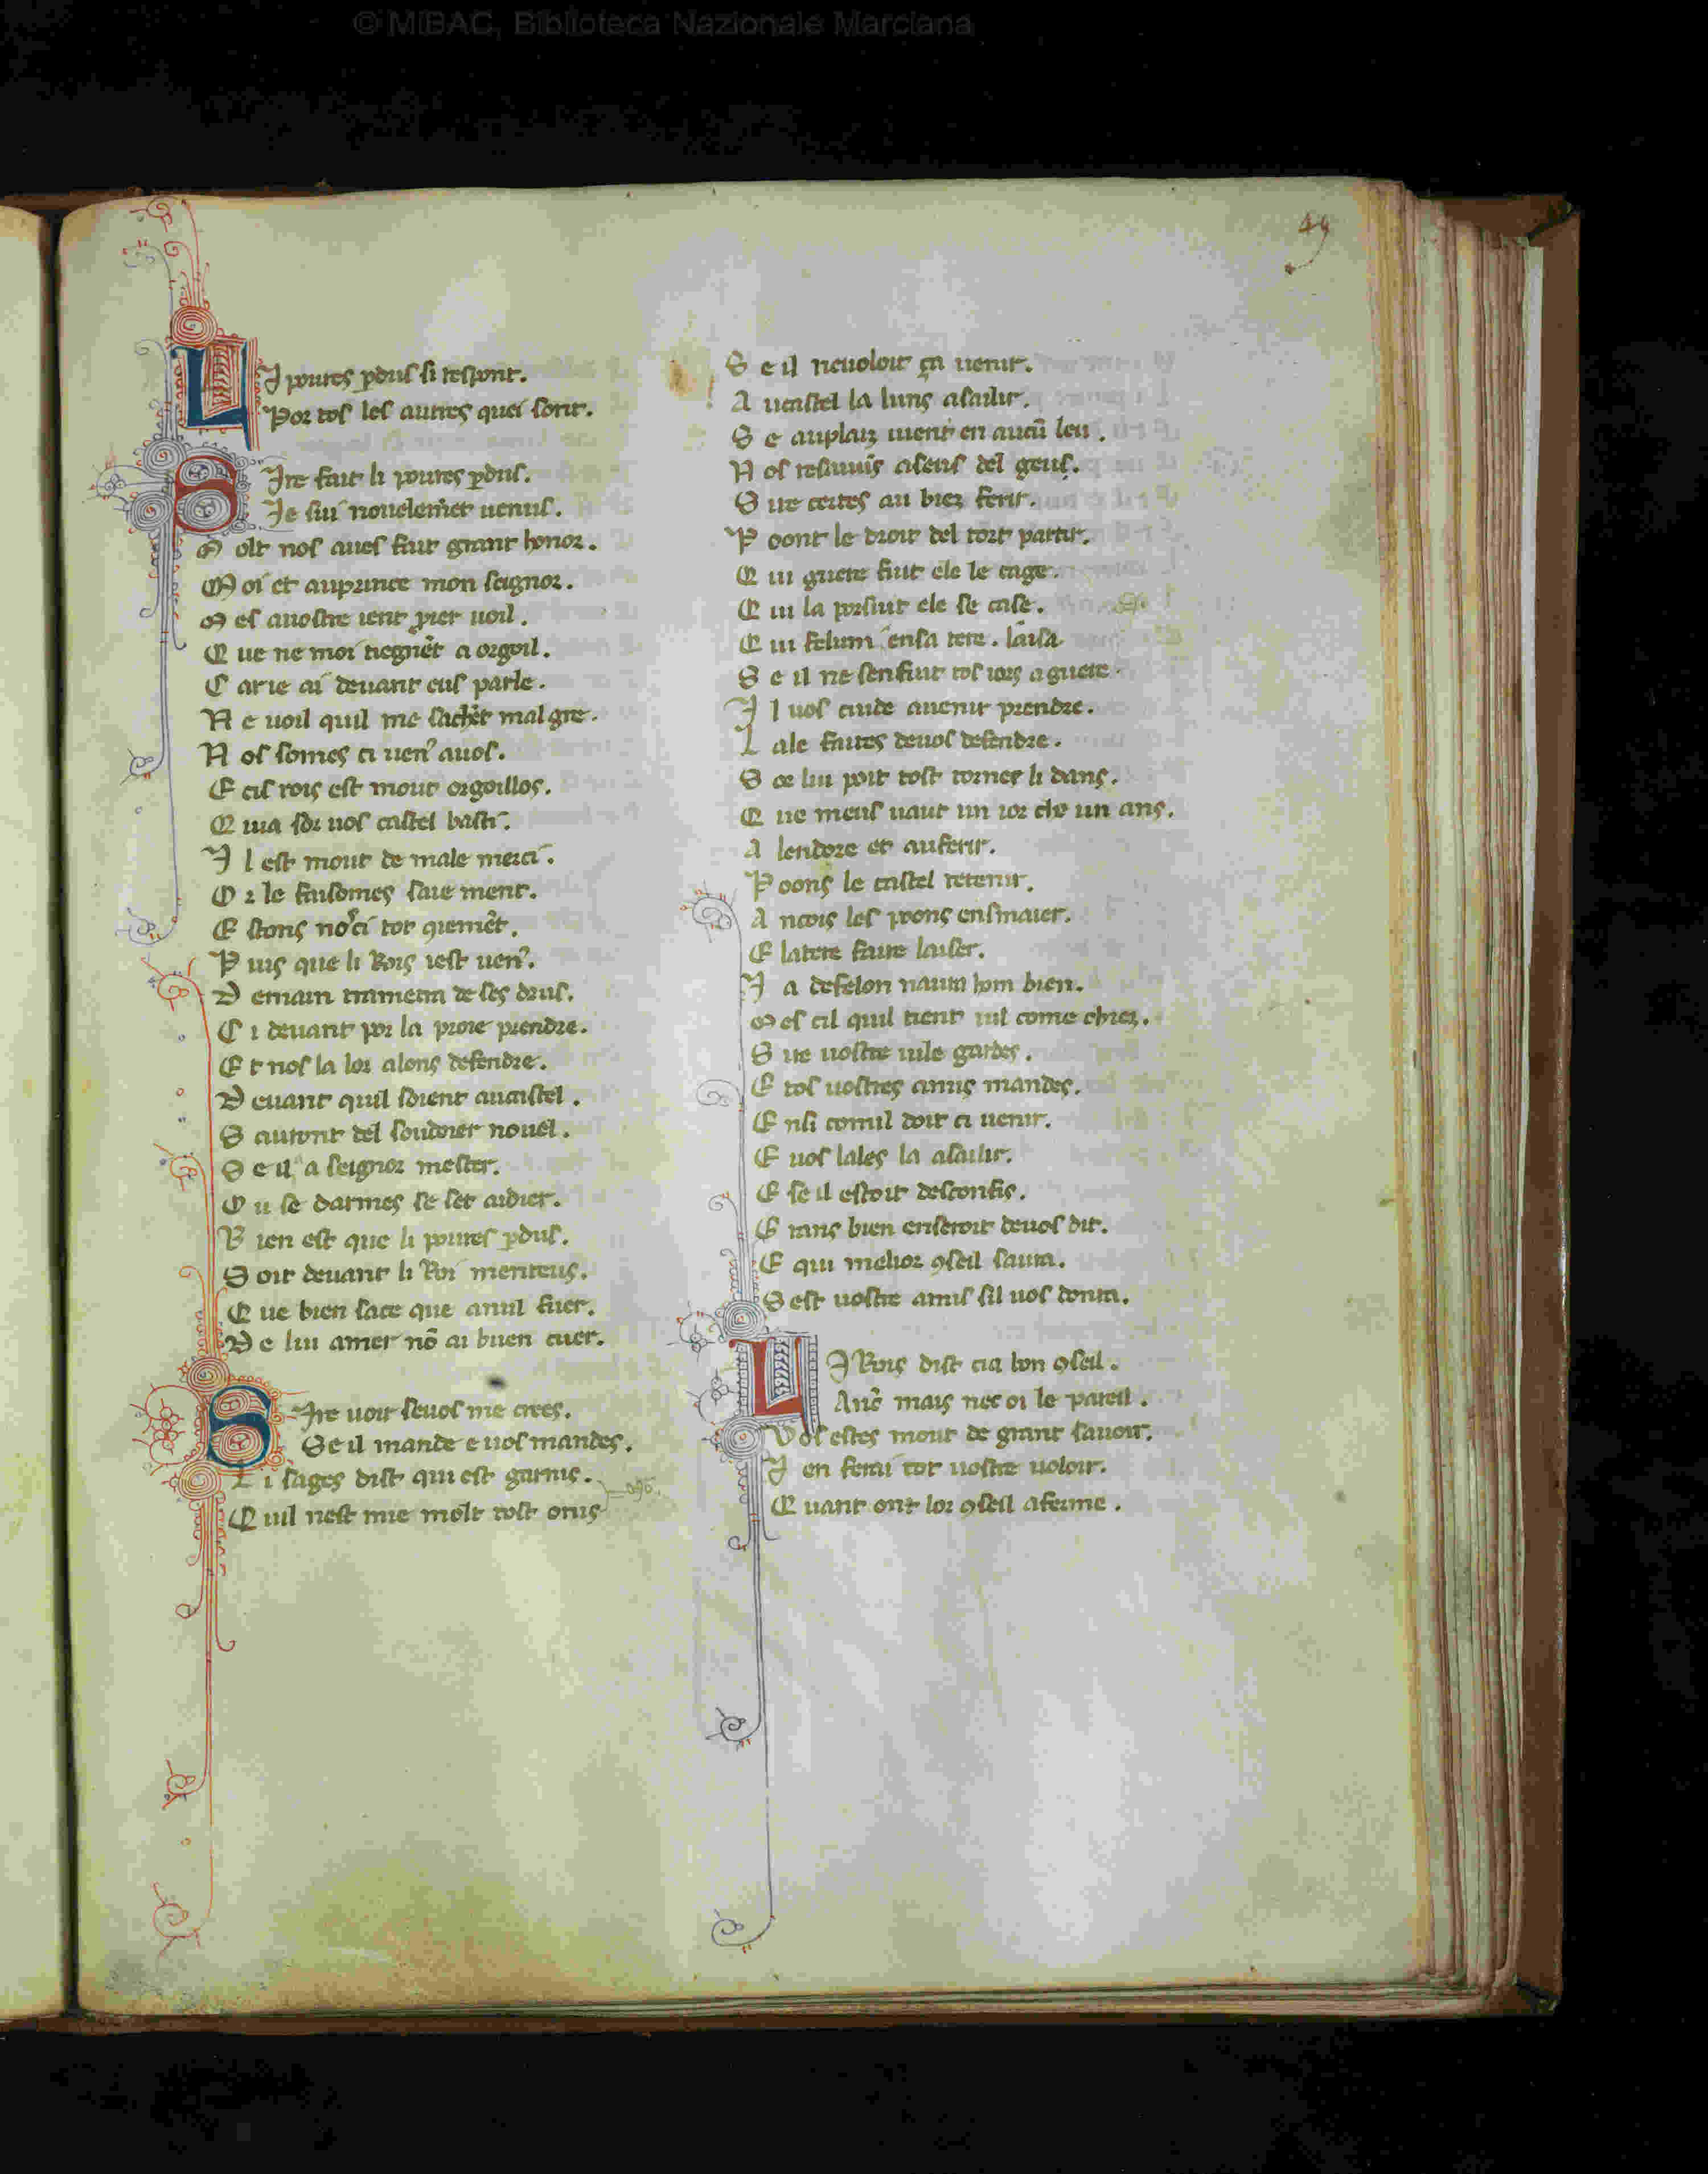 © MiBAC, Biblioteca Nazionale Marciana
49
LI poures pdus si respont.
Por tos les autres quei sont.
SIre fait li poures pdus.
Ie sui nouelemet uenus.
M olt nos aues fait grant honor.
M oi et auprince mon seignor.
M es auostre ient prer uoil.
Q ue ne moi tiegnēt a orgoil.
C ar ie ai deuant eus parle.
N e uoil quil me sachēt mal gre.
N os somes ci uen9 auos.
E cil rois est mout orgoillos.
Q uia sor uos castel basti.
I l est mout de male merci.
O r le faisomes saie ment.
E stons noci tot qiemēt.
P uis que li Rois iest uen9.
D emain trametra de ses drus.
C i deuant por la proie prendre.
E t nos la lor alons defendre.
D euant quil soient aucastel.
S auront del soudoier nouel.
S e il a seignor mester.
O u se darmes se set aidier.
B ien est que li poures pdus.
S oit deuant li Roi menteus.
Q ue bien sace que anul fuer.
D e lui amer nō ai buen cuer.
SIre uoir seuos me crees.
Se il mande e uos mandes.
L i sages dist qui est garnis.
Q uil nest mie molt tost onis
S e il neuoloit ça uenir.
A ucastel la luns asailir.
S e auplaiz uient en aucū leu.
N os resiuuis asens del geus.
S ue certes au biez ferir.
P oont le droit del tort partir.
Q ui guere fuit ele le cage.
Q ui la porsiut ele se case.
Q ui felum ensa tere. laisa
S e il ne senfuit tos iors a guere.
I l uos cuide auenir prendre.
L ale faites deuos defendre.
S ce lui poit tost torner li dans.
Q ue meus uaut un ior che un ans.
A lendore et auferir.
P oons le castel retenir.
A ncois les poons ensmaier.
E latere faire laiser.
I a defelon naura hom bien.
M es cil quil tient uil come chiez.
S ue uostre uile gardes.
E tos uostres amis mandes.
E nsi comil doit ci uenir.
E uos lales la asailir.
E se il estoit desconfis.
E rans bien enseroit deuos dit.
E qui melior 9seil saura.
S est uostre amis sil uos donra.
LI Rois dist cia bon 9seil.
Anc̄ mais nec oi le pareil.
Vos estes mout de grant sauoir.
I en ferai tot uostre uoloir.
Q uant ont lor 9seil aferme.